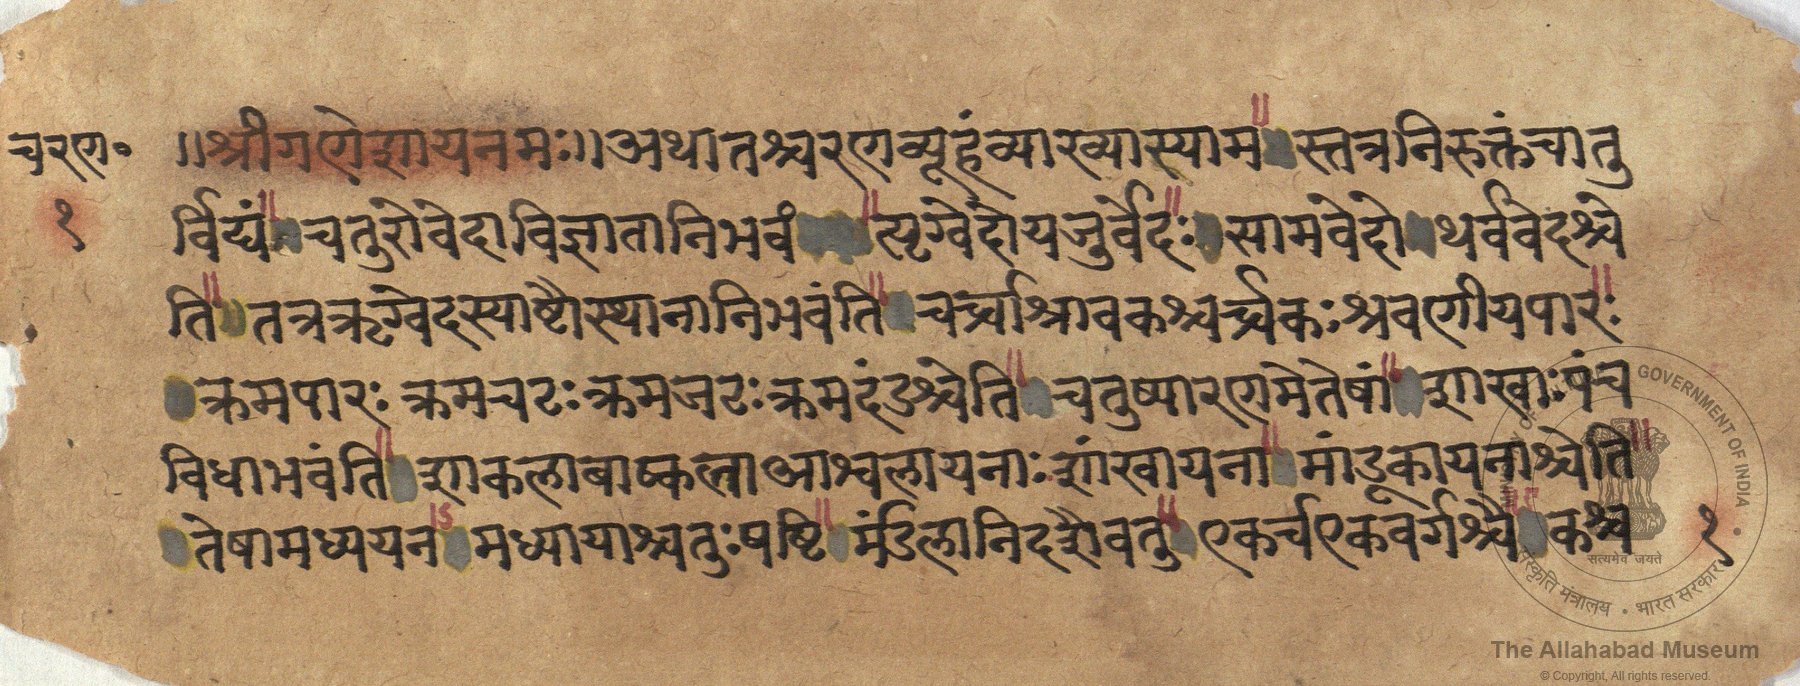 चरण॰ ॥श्रीगणेशायनमः॥अथातश्चरणव्यूहंव्याख्यास्याम॥स्तत्रनिरुक्तंचातु
१ र्विद्यं॥चतुरोवेदाविज्ञातानिभवं॥त्पृग्वेदोयजुर्वेदः॥सामवेदोथर्ववेदश्चे
ति॥तत्रऋग्वेदस्याष्टौस्थानानिभवंति॥चर्च्चाश्रावकश्चर्च्चकःश्रवणीयपारः॥
क्रमपारः क्रमचटःक्रमजटःक्रमदंडश्चेति॥चतुष्पारणमेतेषां॥शाखाःपंच
विधाभवंति॥शाकलाबाष्कलाआश्वलायनाःशांखायना॥मांडूकायनाश्चेति॥
तेषामध्ययनऽ॥मध्यायाश्चतुःषष्टि॥मंडलानिदशैवतु॥एकर्चएकवर्गश्चै॥कश्च १
GOVERNMENT OF INDIA
सत्यमेव जयते
संस्कृति मंत्रालय • भारत सरकार
The Allahabad Museum
© Copyright, All rights reserved.